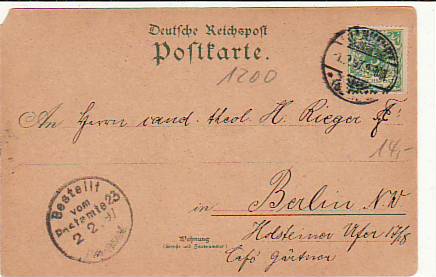 Deutsche Reichspost
Postkarte.
1200
An Herrn cand. theol. H. Rieger
14,-
in Berlin N.W
Wohnung
(Straße und Hausnummer)
Holsteiner Ufer 17/8
Café Gärtner
Bestellt
vom
Postamte 23
2 2. 97